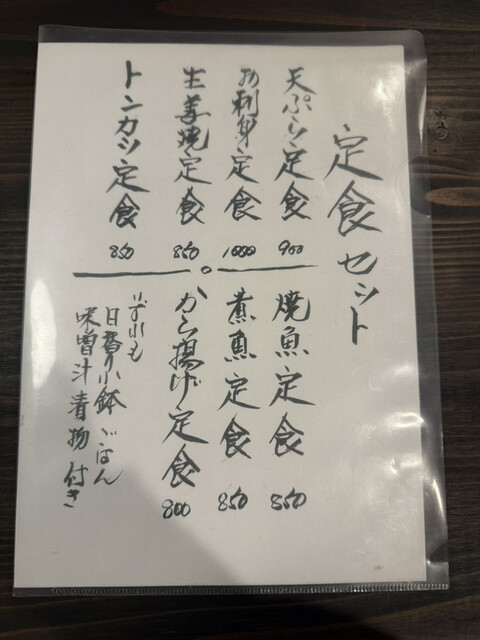 定食セット
天ぷら定食 900
お刺身定食 1000
生姜焼定食 850
トンカツ定食 850
焼魚定食 850
煮魚定食 850
から揚げ定食 800
いずれも
日替り小鉢ごはん
味噌汁漬物付き